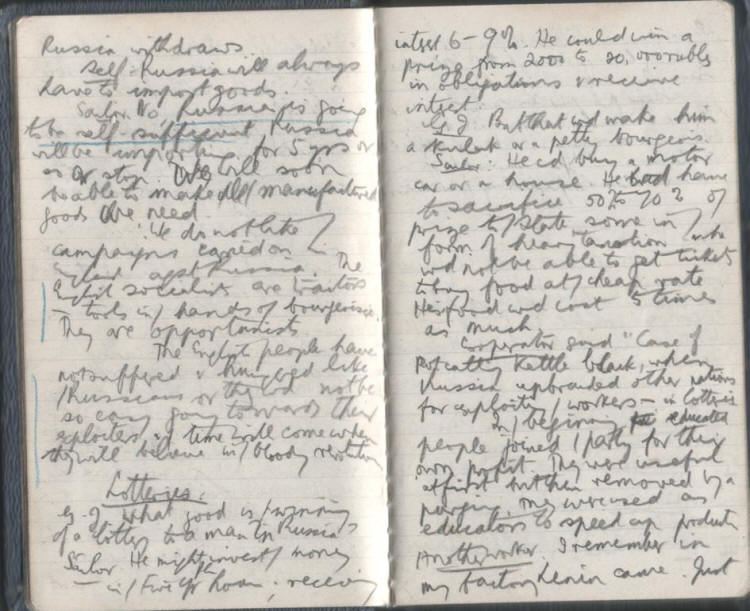 Russia withdraws.
Self. Russia will always
have to import goods.
Sailor. No, Russia is going
to be self sufficient. Russia
will be importing for 5 yrs or
so or stop. We will soon
be able to make all manufactured
goods we need
We do not like
campaigns carried on in
England agst Russia. The
English socialists are traitors
– tools in / hands of bourgeoisie.
They are opportunists
The English people have
not suffered & hungered like
/ Russians or they wd not be
so easy going towards their
exploiters, a time will come when
they will believe in / bloody revolution
Lotteries.
e.g. J What good is / winning
of a lottery to a man in Russia
Sailor He might invest / money
in / Five Yr Loan, receiving
interest 6–9%. He could win a
prize from 2000 to 20,000 rubls
in obligations & receive
interest.
J But that wd make him
a kulak or a petty bourgeois.
Sailor: He cd buy a motor
car or a house. He had have
to sacrifice 50% 70% of
prize to / State some in /
form of heavy taxation
wd not be able to get tickets
to buy food at / cheap rate
His food wd cost 5 times
as much
Cooperator said "Case of
Pot calling Kettle black, when
Russia upbraided other nations
for exploiting / workers – in lotteries
In / beginning educated
people joined / party for their
own profit. They were useful
at first but then removed by a
purging. They were used as
educators to speed up production
Another worker. I remember in
my factory Lenin came. Just